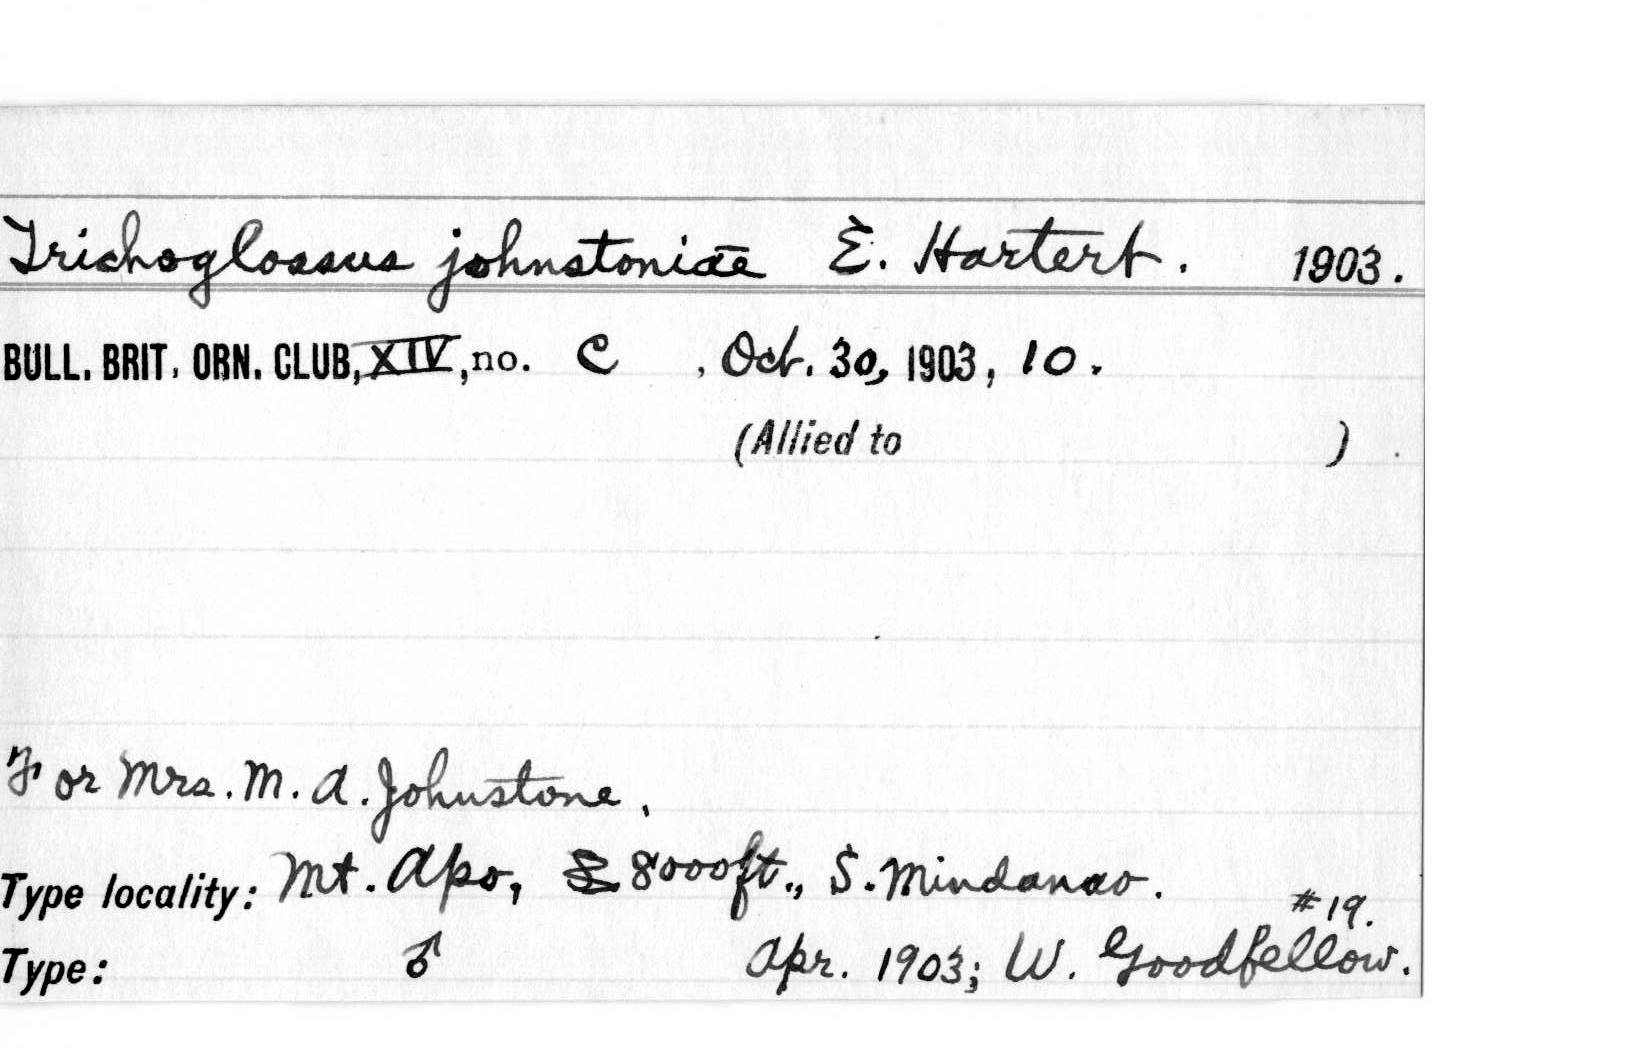 Trichoglossus johnstoniæ E. Hartert. 1903.
BULL. BRIT. ORN. CLUB, XIV, no. C , Oct. 30, 1903, 10.
(Allied to ) .
For Mrs. M. A. Johnstone.
Type locality: Mt. Apo, 8000ft., S. Mindanao.
#19.
Type: ♂ Apr. 1903; W. Goodfellow.